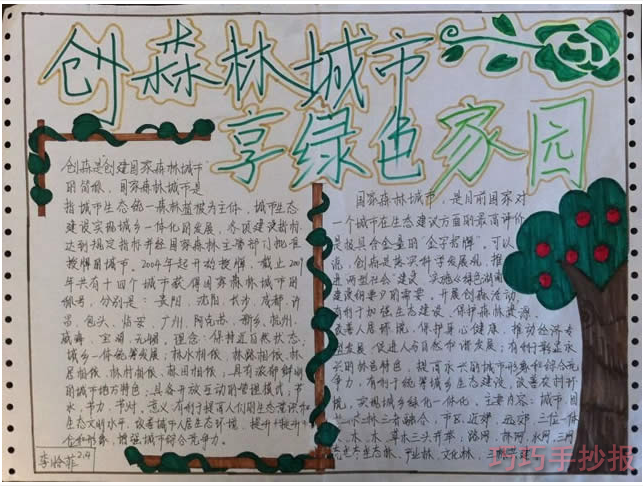 创森林城市
享绿色家园
创森是"创建国家森林城市"
的简称。国家森林城市是
指城市生态统一森林植被为主体,城市生态
建设实现城乡一体化的发展,各项建设指标
达到规定指标并经国家森林主管部门批准
授牌的城市。2004年起开始授牌,截止20
年共有十四个城市获得国家森林城市的
称号,分别是:贵阳、沈阳、长沙、成都、许
昌、包头、临安、广州、阿克苏、新乡、杭州、
威海、宝鸡、无锡。理念:保持近自然状态;
城乡一体统筹发展;林水相依、林路相依、林
居相依、林村相依、林田相依,具有浓郁鲜明
的城市地方特色;具备开放互动的管理模式;节
水、节力、节财。意义:有利于提高人们的生态意识和
生态文明水平,改善城市人居生态环境,提升
合和形象,增强城市综合竞争力。
李怡菲2.4
国家森林城市,是目前国家对
一个城市在生态建设方面的最高评价
是极具含金量的"金字招牌"。可以
说,创森是落实科学发展观,推
进 型社会"建设、实施《绿色湖南
建设纲要》的需要。开展创森活动,
有利于加强生态建设、保护森林资源、
改善人居环境、保护身心健康、推动经济专
业发展、促进人与自然和谐发展;有利于彰显水
米的外色特色,提高 的城市形象和综合竞
争力;有利于统筹城乡生态建设,改善农村环
境,实现城乡绿化一体化。主要内容:城市园
林 三者融合,市区、近郊、远郊三位一体
水、木、草木三头并举,路网、林网、水网三网
生态林、产业林、文化林、三 建
巧巧手抄报